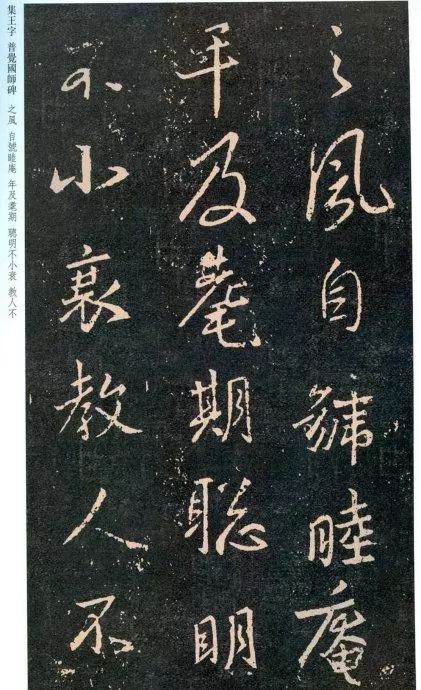 之風自號睦庵
年及耄期聰明
不小衰教人不
集王字 普覺國師碑 之風 自號睦庵 年及耄期 聰明不小衰 教人不